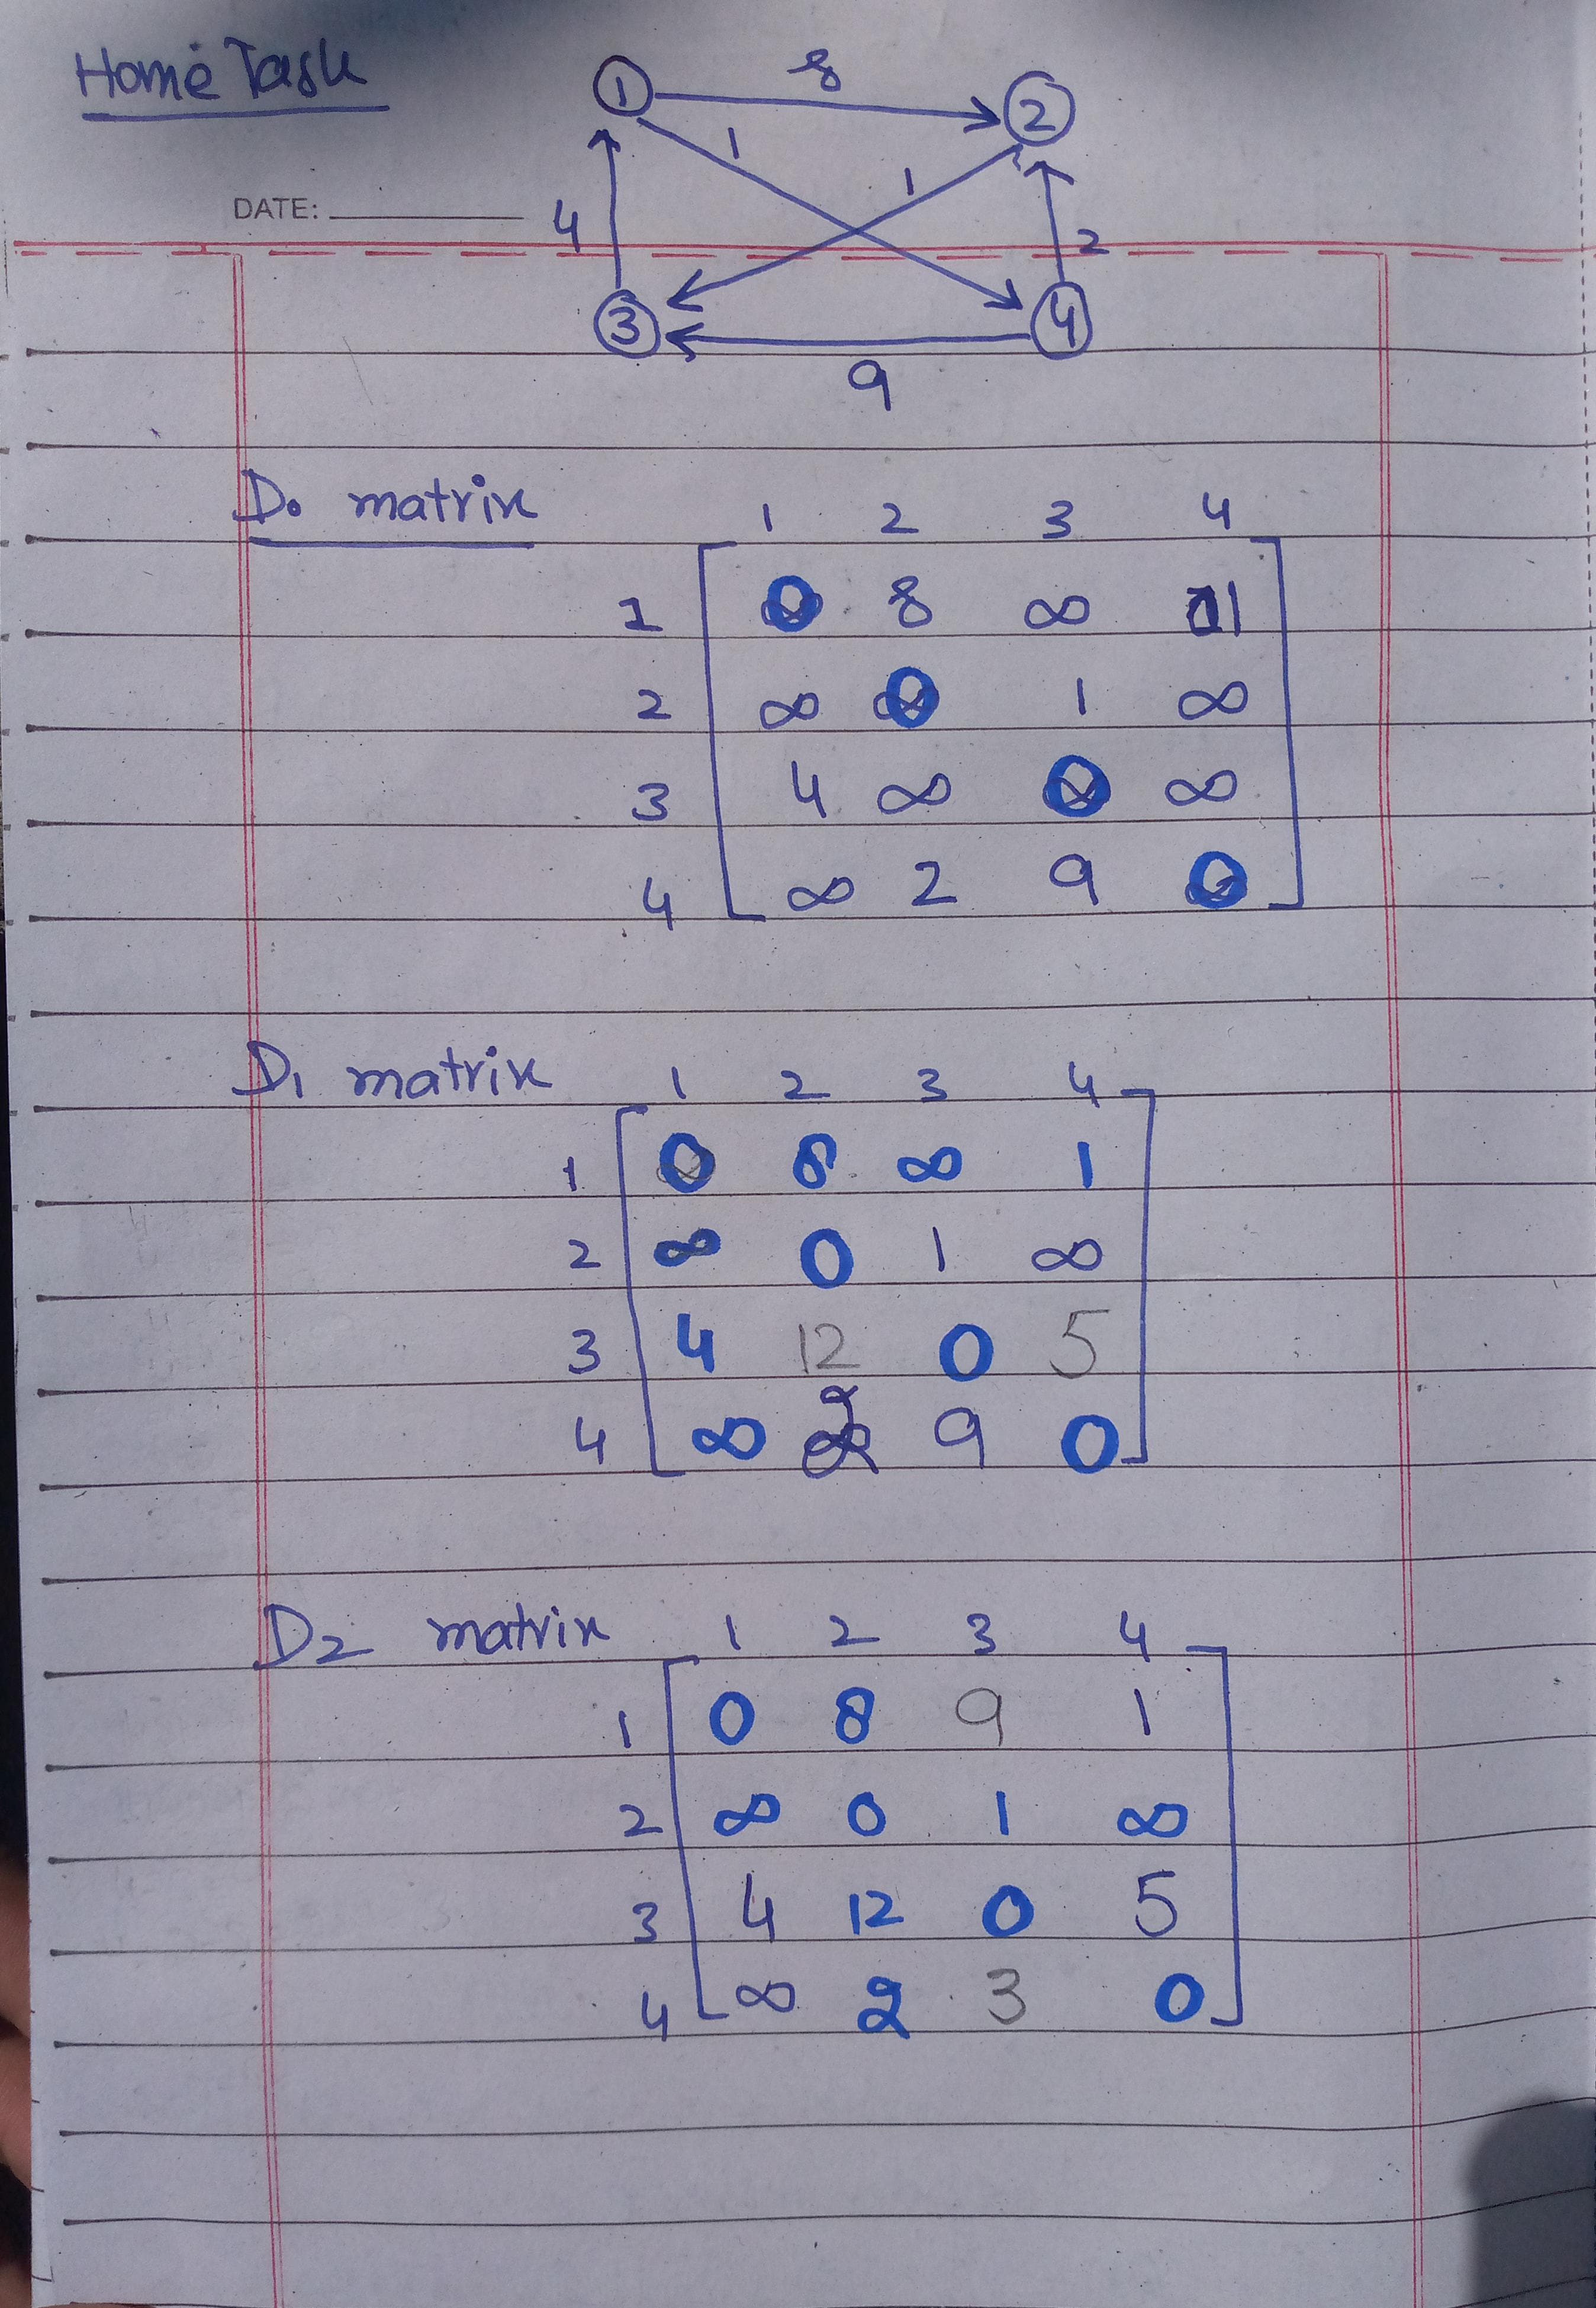 Home Task
1 8 2
1 1
DATE: 4 2
3 4
9
D₀ matrix 1 2 3 4
1 0 8 ∞ 1
2 ∞ 0 1 ∞
3 4 ∞ 0 ∞
4 ∞ 2 9 0
D₁ matrix 1 2 3 4
1 0 8 ∞ 1
2 ∞ 0 1 ∞
3 4 12 0 5
4 ∞ 2 9 0
D2 matrix 1 2 3 4
1 0 8 9 1
2 ∞ 0 1 ∞
3 4 12 0 5
4 ∞ 2 3 0